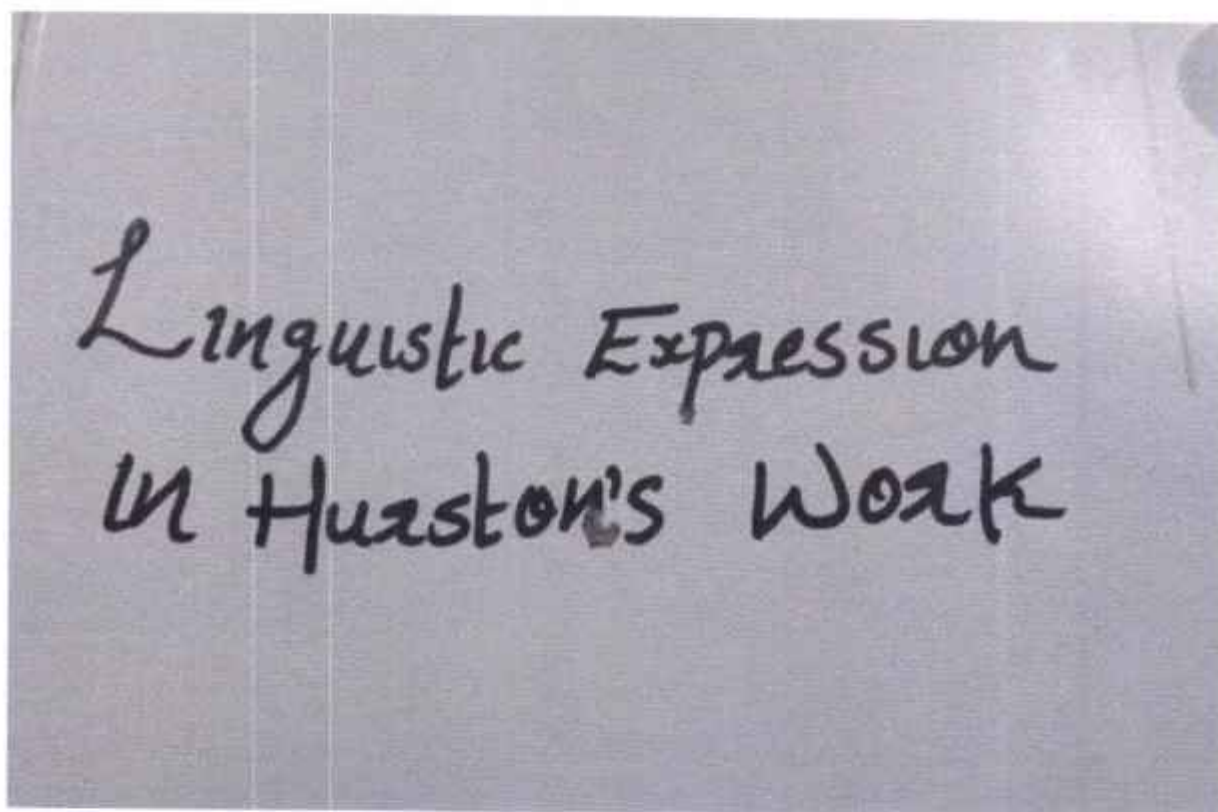 Linguistic Expression
in Hurston's Work